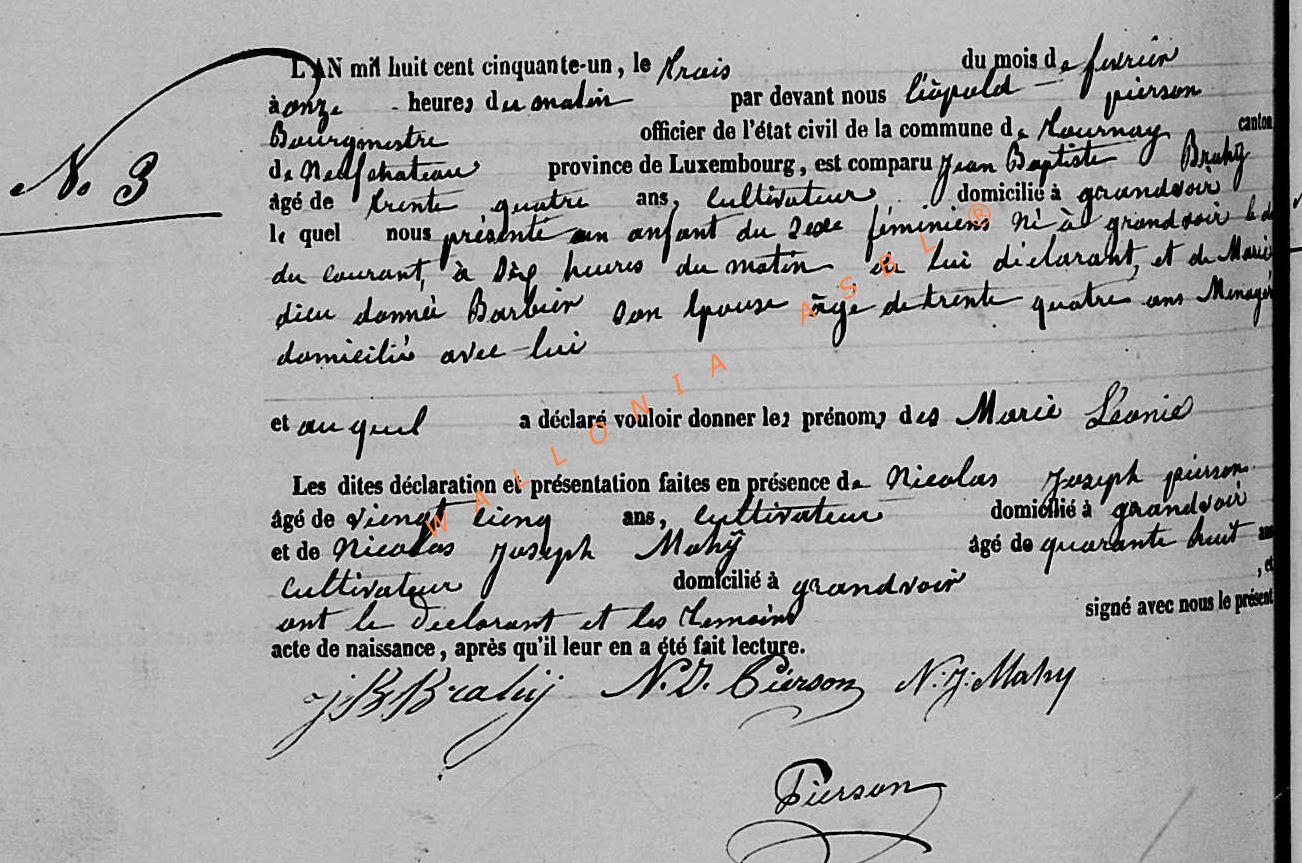 L'AN mil huit cent cinquante-un, le trois du mois de fevrier
à onze heures du matin par devant nous léopold pierson
Bourgmestre officier de l'état civil de la commune de tournay canton
No 3
de neufchateau province de Luxembourg, est comparu jean Baptiste
âgé de trente quatre ans, cultivateur domicilié à grandvoir
le quel nous présenté un anfant du sexe féminiens né à grandvoir le
du courant, à dix heures du matin de lui déclarant, et de Marie
dieu donnée Barbier son épouse âgé de trente quatre ans Menagér
domicilié avec lui
et au quel a déclaré vouloir donner les prénoms des Marie Léonie
Les dites déclaration et présentation faites en présence de Nicolas joseph pierson
âgé de viengt cienq ans, cultivateur domicilié à grandvoir
et de Nicolas joseph Mahÿ âgé de quarante huit ans
cultivateur domicilié à grandvoir , et
ont le déclarant et les temoins signé avec nous le présent
acte de naissance, après qu'il leur en a été fait lecture.
N. J. Pierson N. J. Mahy
Pierson
WALLONIA ASBL ®